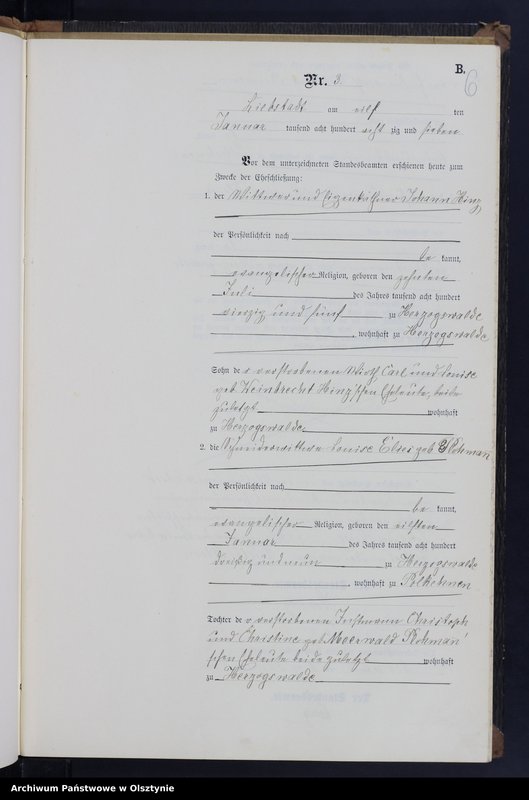 B.
6
Nr. 3.
Liebstadt am eilf ten
Januar tausend acht hundert acht zig und sieben
Vor dem unterzeichneten Standesbeamten erschienen heute zum
Zwecke der Eheschließung:
1. der Wittwer und Eigenkäthner Johann Hinz
der Persönlichkeit nach
be kannt,
evangelischer Religion, geboren den zehnten
Juli des Jahres tausend acht hundert
vierzig und fünf zu Herzogswalde
, wohnhaft zu Herzogswalde
Sohn der verstorbenen Carl und Louise
geb. Weinbrecht Hinz'schen Eheleute, beide
zuletzt wohnhaft
zu Herzogswalde.
2. die Louise geb.
der Persönlichkeit nach
be kannt,
evangelischer Religion, geboren den eilften
Januar des Jahres tausend acht hundert
dreißig und neun zu Herzogswalde
, wohnhaft zu Polkehnen
Tochter der verstorbenen Instmann Christoph
und Christine geb. Meerwald
schen Eheleute beide zuletzt wohnhaft
zu Herzogswalde
Archiwum Państwowe w Olsztynie